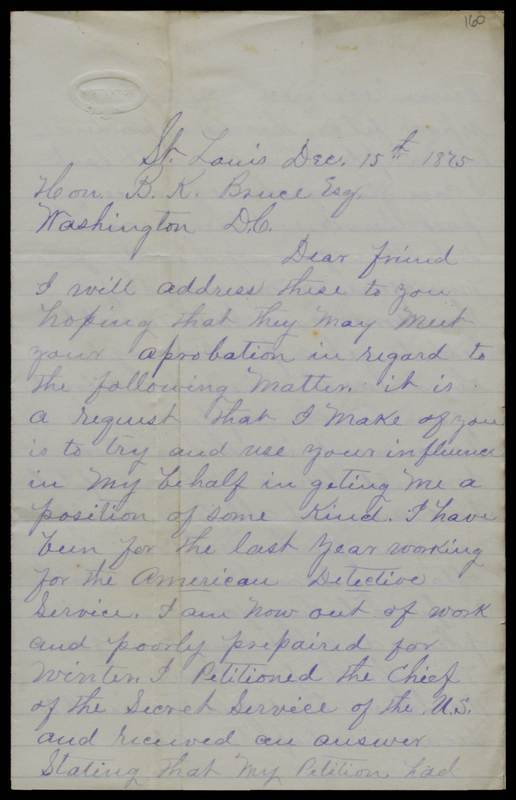 160
St. Louis Dec. 15th 1875
Hon. B. K. Bruce Esq.
Washington D.C.
Dear friend
I will address these to you
hoping that they may meet
your aprobation in regard to
the following matter. it is
a request that I make of you
is to try and use your influence
in my behalf in geting me a
position of some kind. I have
been for the last year working
for the American Detective
Service. I am now out of work
and poorly prepaired for
winter. I Petitioned the Chief
of the Secret Service of the U.S.
and received an answer
Stating that my Petition had